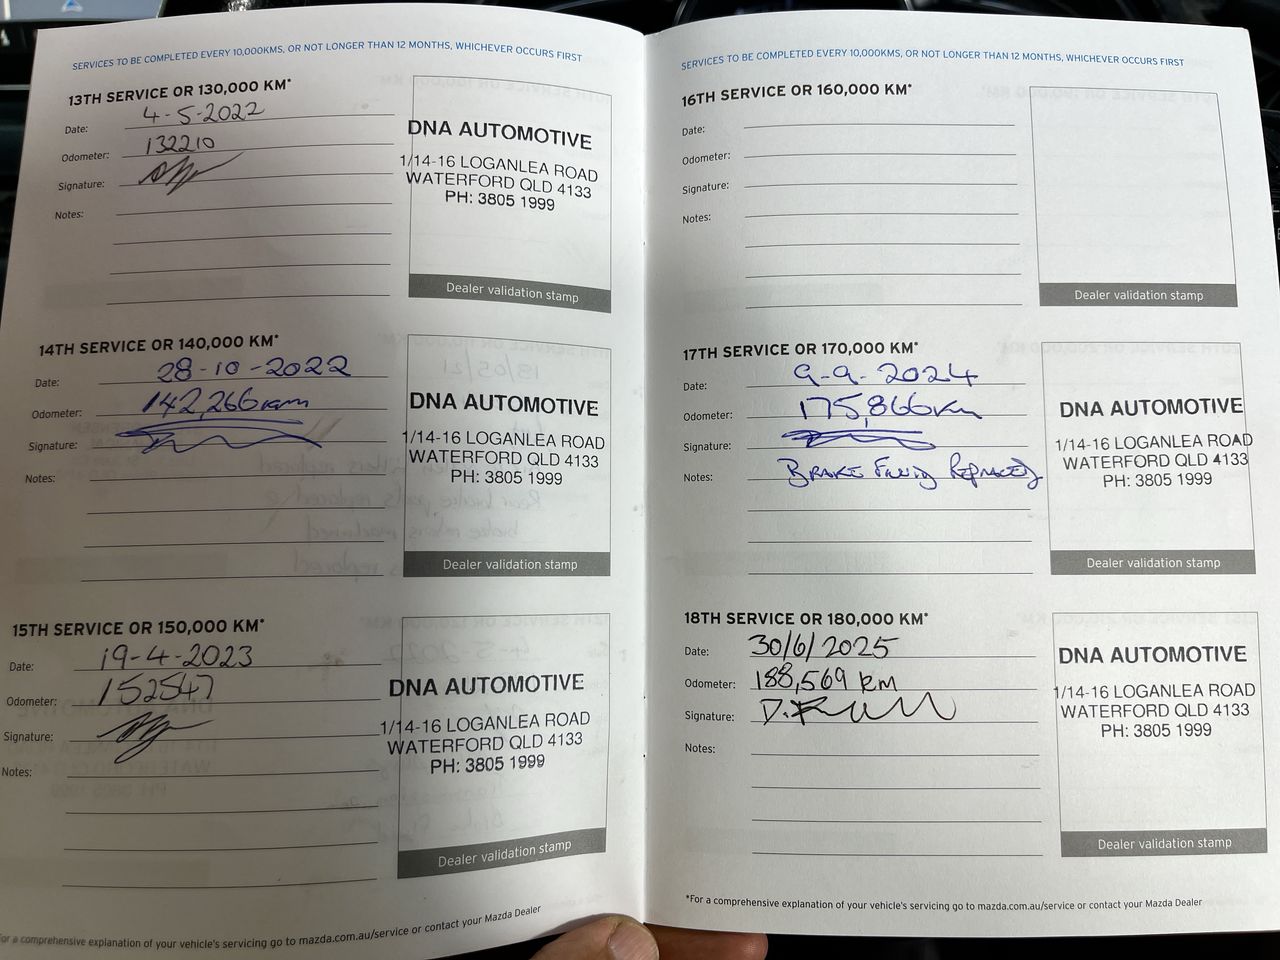 SERVICES TO BE COMPLETED EVERY 10,000KMS, OR NOT LONGER THAN 12 MONTHS, WHICHEVER OCCURS FIRST
13TH SERVICE OR 130,000 KM*
Date: 4-5-2022
Odometer: 132210
Signature:
Notes:
DNA AUTOMOTIVE
1/14-16 LOGANLEA ROAD
WATERFORD QLD 4133
PH: 3805 1999
Dealer validation stamp
14TH SERVICE OR 140,000 KM*
Date: 28-10-2022
Odometer: 142,266km
Signature:
Notes:
DNA AUTOMOTIVE
1/14-16 LOGANLEA ROAD
WATERFORD QLD 4133
PH: 3805 1999
Dealer validation stamp
15TH SERVICE OR 150,000 KM*
Date: 19-4-2023
Odometer: 152547
Signature:
Notes:
DNA AUTOMOTIVE
1/14-16 LOGANLEA ROAD
WATERFORD QLD 4133
PH: 3805 1999
Dealer validation stamp
For a comprehensive explanation of your vehicle's servicing go to mazda.com.au/service or contact your Mazda Dealer
SERVICES TO BE COMPLETED EVERY 10,000KMS, OR NOT LONGER THAN 12 MONTHS, WHICHEVER OCCURS FIRST
16TH SERVICE OR 160,000 KM*
Date:
Odometer:
Signature:
Notes:
Dealer validation stamp
17TH SERVICE OR 170,000 KM*
Date: 9-9-2024
Odometer: 175,866km
Signature:
Notes: BRAKE FLUID REPLACED
DNA AUTOMOTIVE
1/14-16 LOGANLEA ROAD
WATERFORD QLD 4133
PH: 3805 1999
Dealer validation stamp
18TH SERVICE OR 180,000 KM*
Date: 30/6/2025
Odometer: 188,569 km
Signature:
Notes:
DNA AUTOMOTIVE
1/14-16 LOGANLEA ROAD
WATERFORD QLD 4133
PH: 3805 1999
Dealer validation stamp
*For a comprehensive explanation of your vehicle's servicing go to mazda.com.au/service or contact your Mazda Dealer